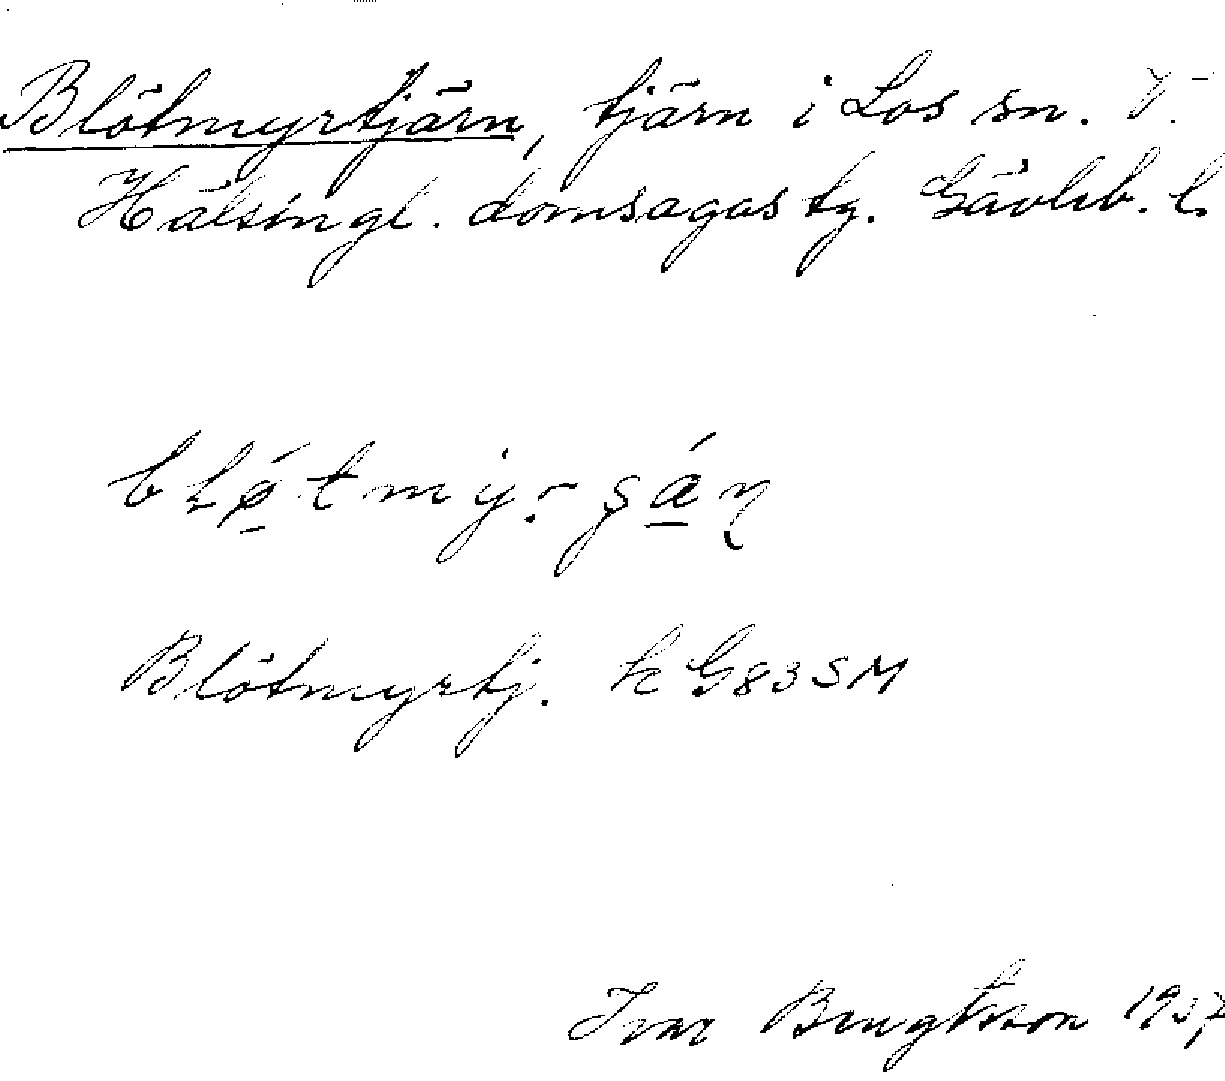 Blötmyrtjärn, tjärn i Los sn. V.
Hälsingl. domsagas tg. Gävleb. l.
Blötmyrtj. k G83SM
Ivar Bengtsson 1937